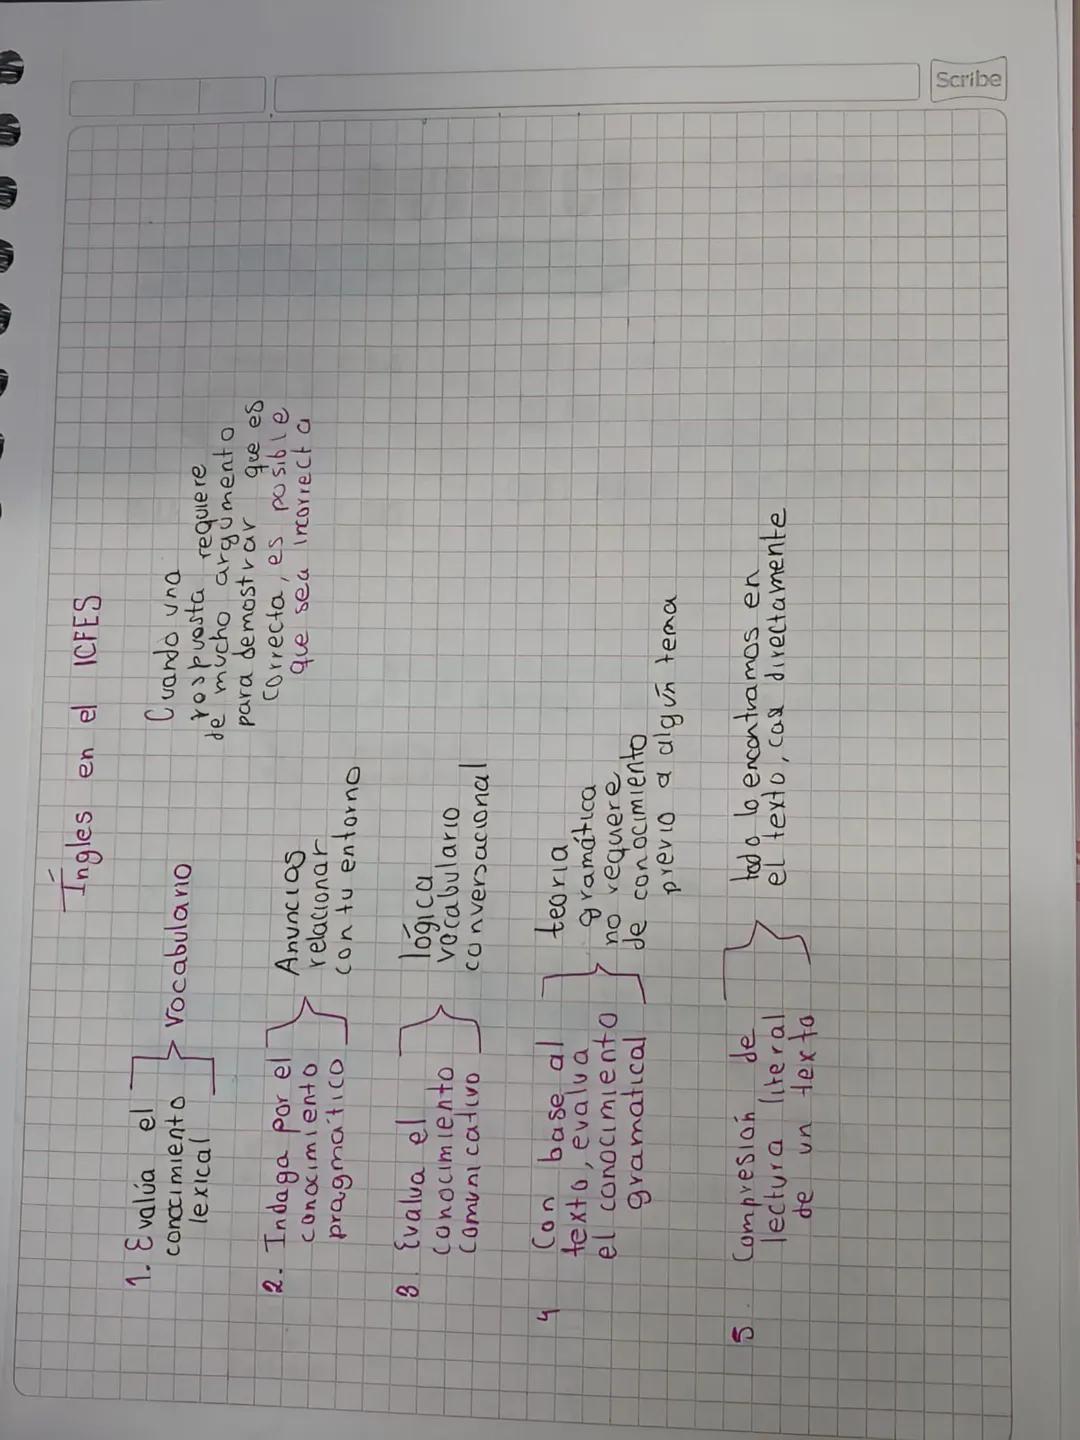 Scribe
Ingles en el ICFES
1. Evalúa el
conocimiento
lexical
vocabulario
Cuando una
respuesta requiere
de mucho argumento
para demostrar que es
correcta, es posible
que sea incorrecta
2. Indaga por el
conocimiento
pragmático
Anuncios
relacionar
con tu entorno
3. Evalua el
conocimiento
comunicativo
lógica
vocabulario
conversacional
4 Con base al
texto, evalua
el conocimiento
gramatical
teoria
gramática
no requere
de conocimiento
previo a algún tema
5. Compresión de
lectura literal
de un texto
todo lo encontramos en
el texto, casi directamente